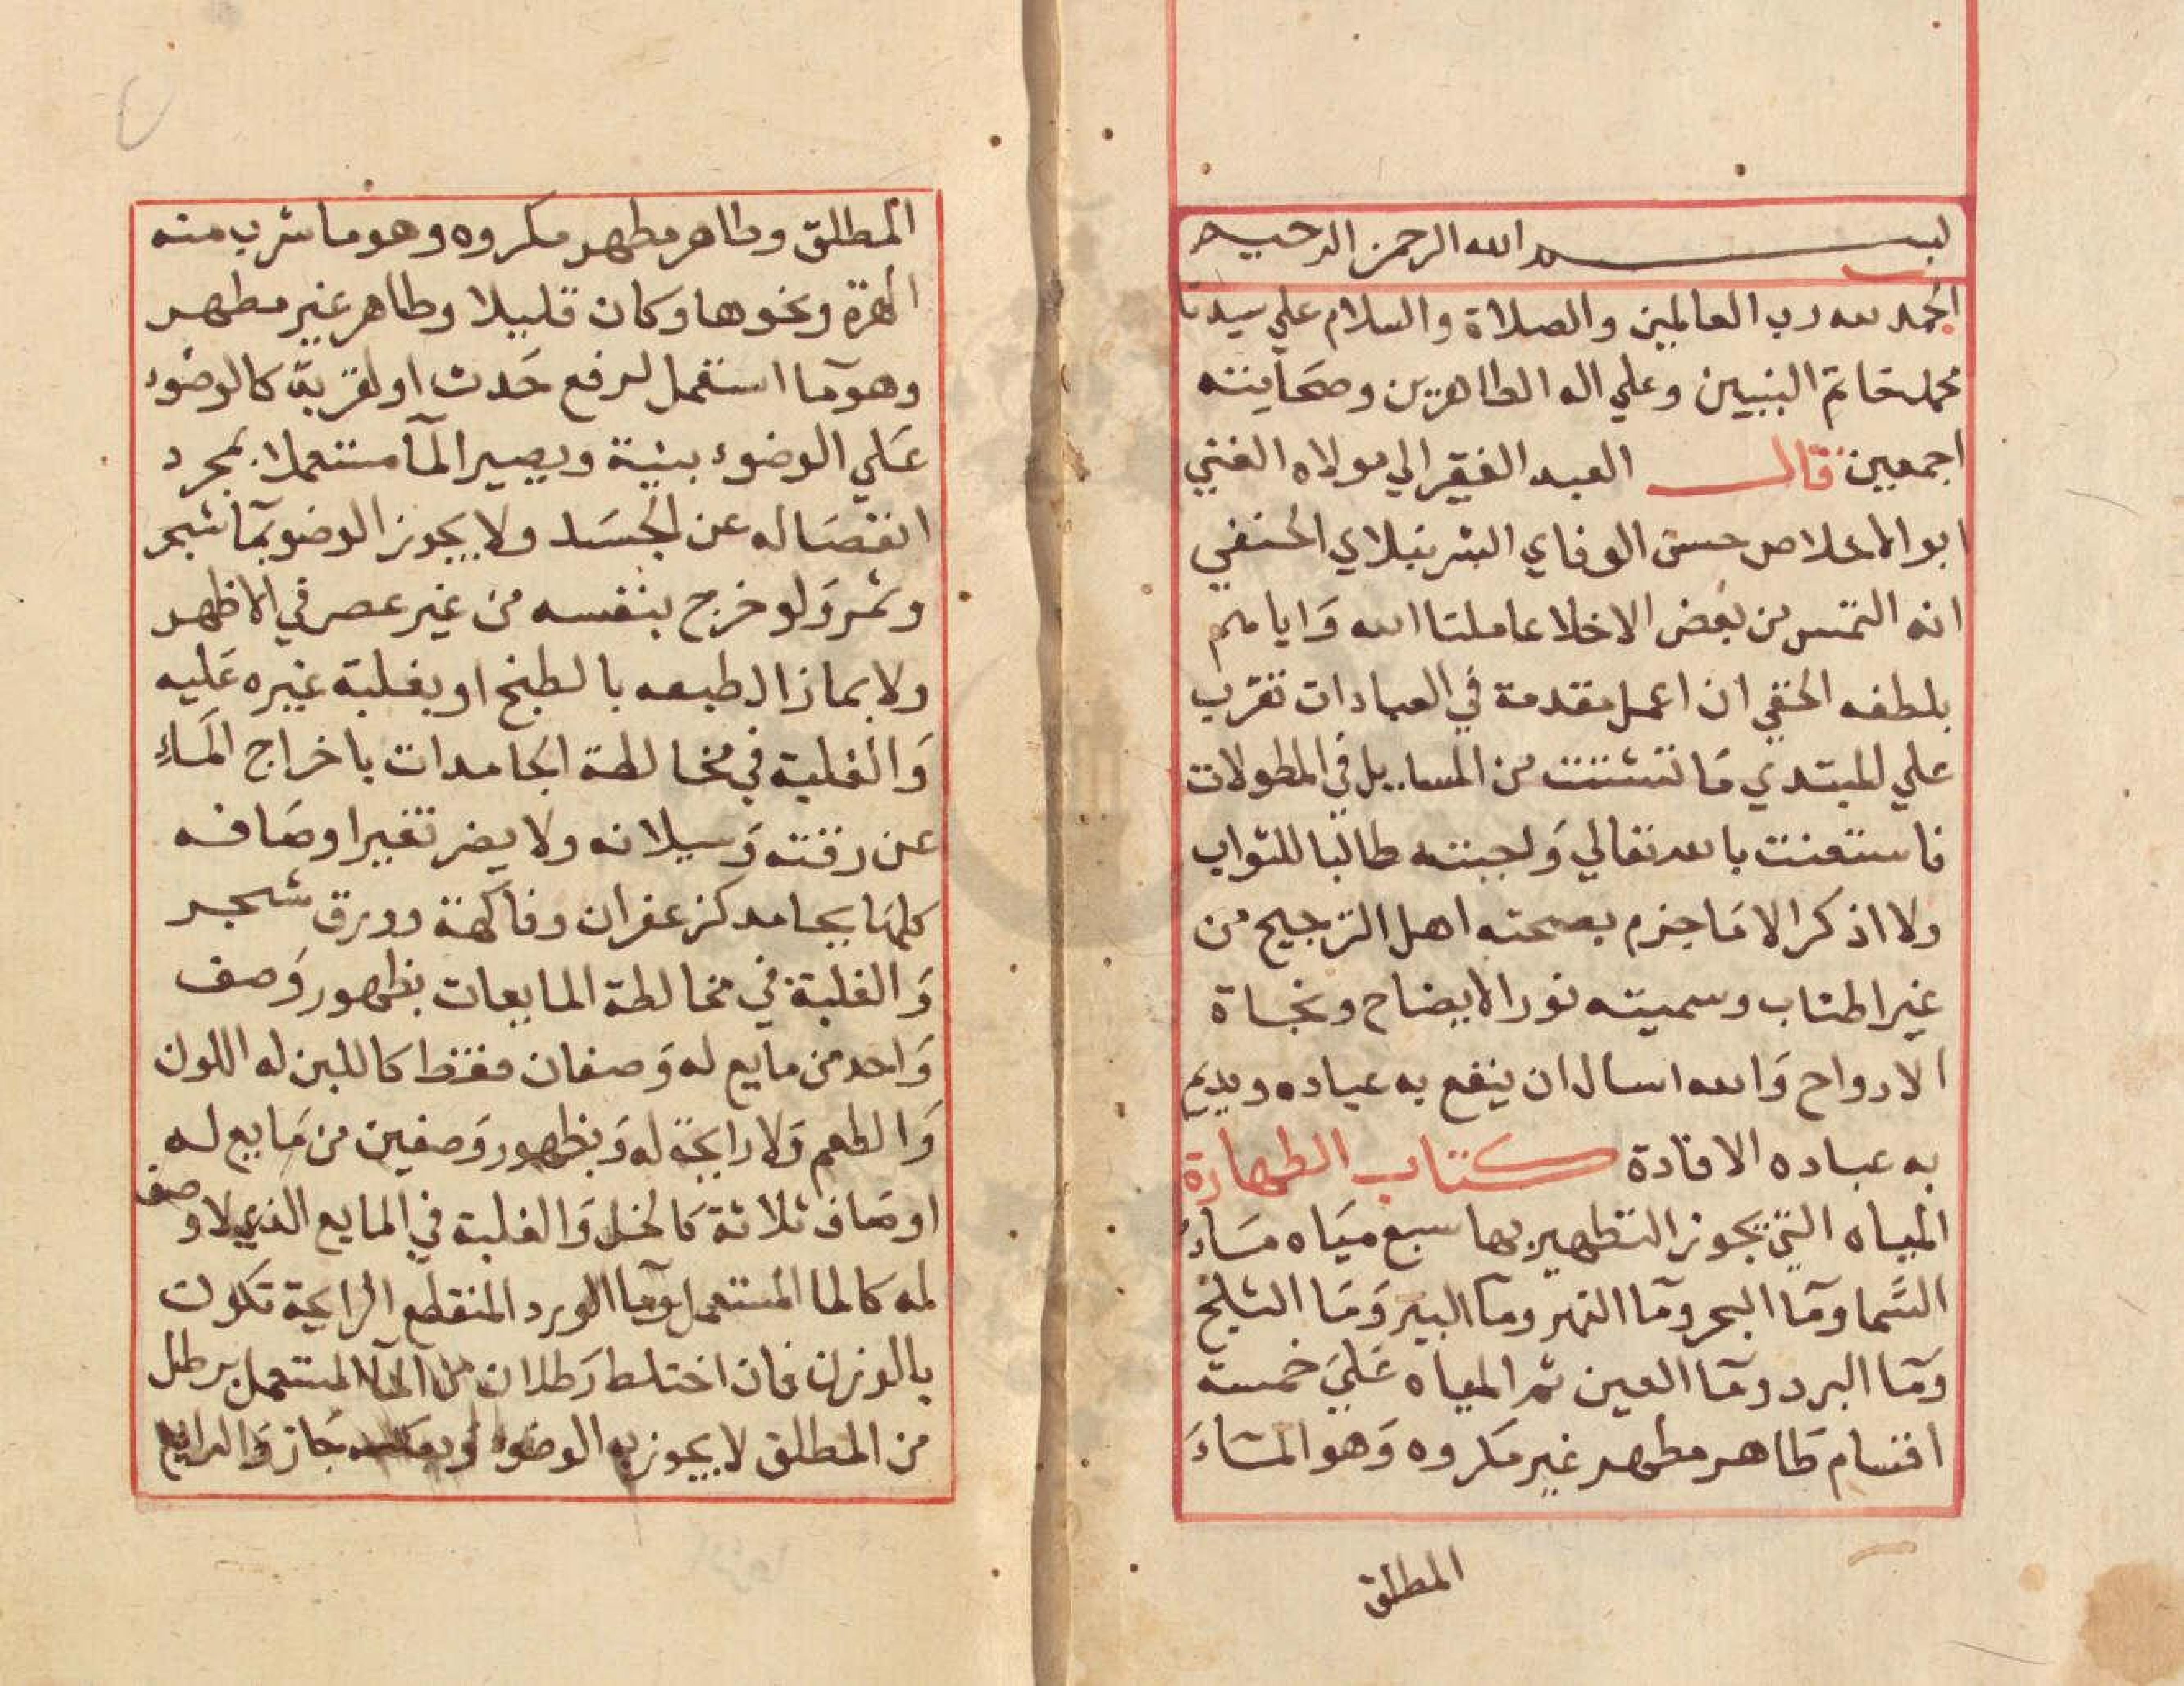 بسم الله الرحمن الرحيم
الحمد لله رب العالمين والصلاة والسلام علي سيدنا
محمد خاتم النبيين وعلي اله الطاهرين وصحابته
اجمعين قال العبد الفقير الي مولاه الغني
ابو الاخلاص حسن الوفاي الشرنبلالي الحنفي
انه التمس من بعض الاخلا عاملنا الله وَاياهم
بلطفه الخفي ان اعمل مقدمة في العبادات تقرب
علي المبتدي مَا تشتت من المسايل في المطولات
فاستعنت بالله تعالي وَاجبته طالبا للثواب
ولا اذكر الا مَا جزم بصحته اهل الترجيح من
غير اطناب وسميته نور الايضاح ونجاة
الارواح وَالله اسال ان ينفع به عباده ويديم
به عباده الافادة كتاب الطهارة
المياه التي يجوز التطهير بها سبع ميَاه مَاء
السَّما ومآ البحر ومآ النهر ومآ البير وَمَا الثلج
ومآ البرد ومآ العين ثم المياه عَليَ خمسة
اقسام طَاهر مطهر غير مكروه وَهو المَاءَ
المطلق
المطلق وطاهر مطهر مكروه وهو ما شرب منه
الهرة ونحوها وكان قليلا وطاهر غير مطهر
وهو مآ استعمل لرفع حَدث او لقربة كالوضوء
عَلي الوضوء بنية ويصير المآ مستعملا بمجرد
انفصَاله عن الجسَد ولا يجوز الوضو بمآ شجر
وثمر وَلو خرج بنفسه من غير عصر في الاظهر
ولا بما زال طبعه بالطبخ او بغلبة غيره عَليه
وَالغلبة في مخالطة الجامدات باخراج المَاءِ
عن رقته وَسيلانه ولا يضر تغير اوصَافه
كلهَا بجامد كزعفران وفاكهة وورق شجر
وَالغلبة في مخالطة المايعات بظهور وَصف
وَاحد من مايع له وَصفان فقط كاللبن له اللون
وَالطعم وَلا رايحة له وَبظهور وَصفين من مَايع له
اوصَاف ثلاثة كَالخل وَالغلبة في المايع الذي لا وصف
له كالما المستعمل ومآ الورد المنقطع الرايحة تكون
بالوزن فان اختلط رَطلان من المآ المستعمل برطل
من المطلق لا يجوز به الوضوء وبعكسه جَاز وَالرابع